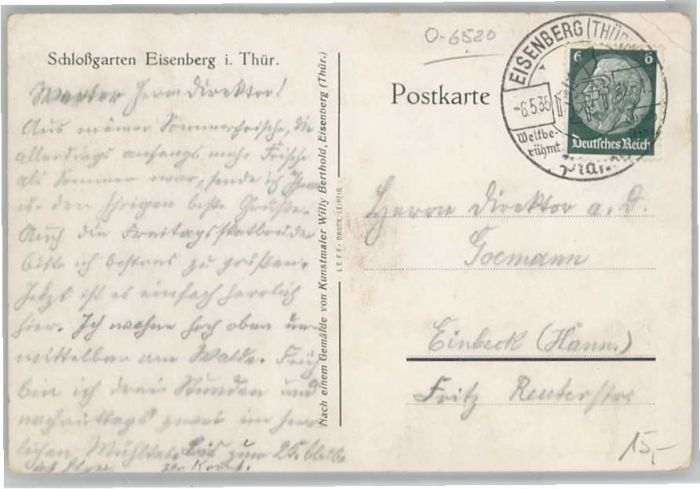 O-6520
Schloßgarten Eisenberg i. Thür.
Werter Herr Direktor!
Aus meiner Sommerfrische, die
allerdings anfangs mehr Frische
als Sommer war, sende ich Ihnen
u. den Ihrigen beste Grüße.
Auch die Freitagsskatbrüder
bitte ich bestens zu grüßen.
Jetzt ist es einfach herrlich
hier. Ich wohne hoch oben un-
mittelbar am Walde. Früh
bin ich drei Stunden und
nachmittags zwei im herr-
lichen Mühltal. Bis zum 25. bleibe
Nach einem Gemälde von Kunstmaler Willy Berthold, Eisenberg (Thür.)
DRUCK, LEIPZIG
Postkarte
EISENBERG (THÜR)
-6.5.35
Weltbe-
rühmt
6 6
Deutsches Reich
Herrn Direktor a. D.
Goemann
Einbeck (Hann.)
Fritz Reuterstr.
15,-